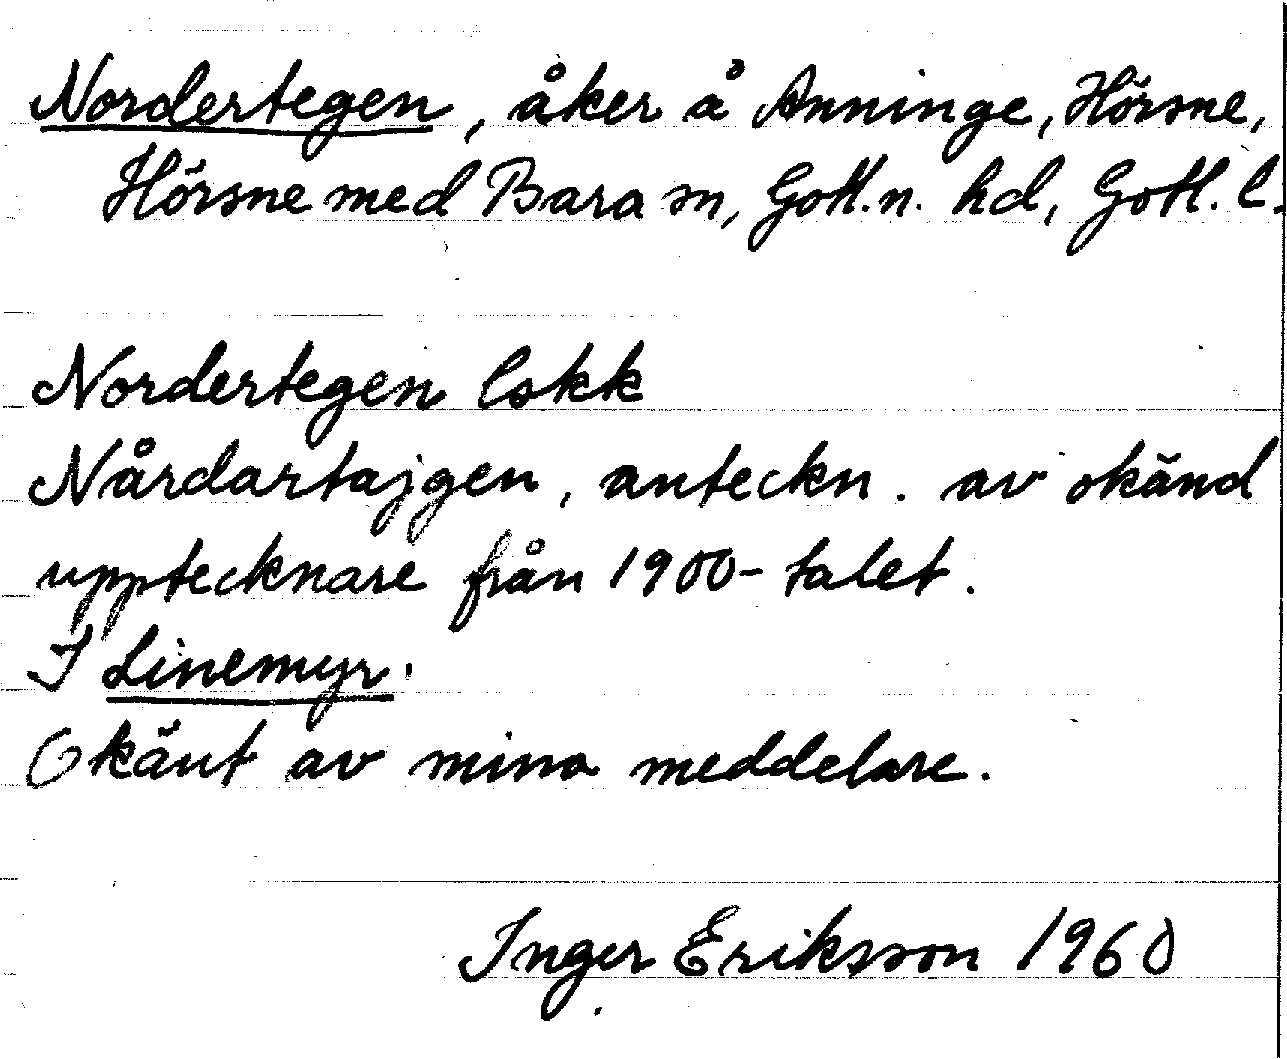 Nordertegen, åker å Anninge, Hörsne,
Hörsne med Bara sn, Gotl.n. hd, Gotl. l.
Nordertegen lskk
Nårdartajgen, anteckn. av okänd
upptecknare från 1900-talet.
I Linemyr.
Okänt av mina meddelare.
Inger Eriksson 1960